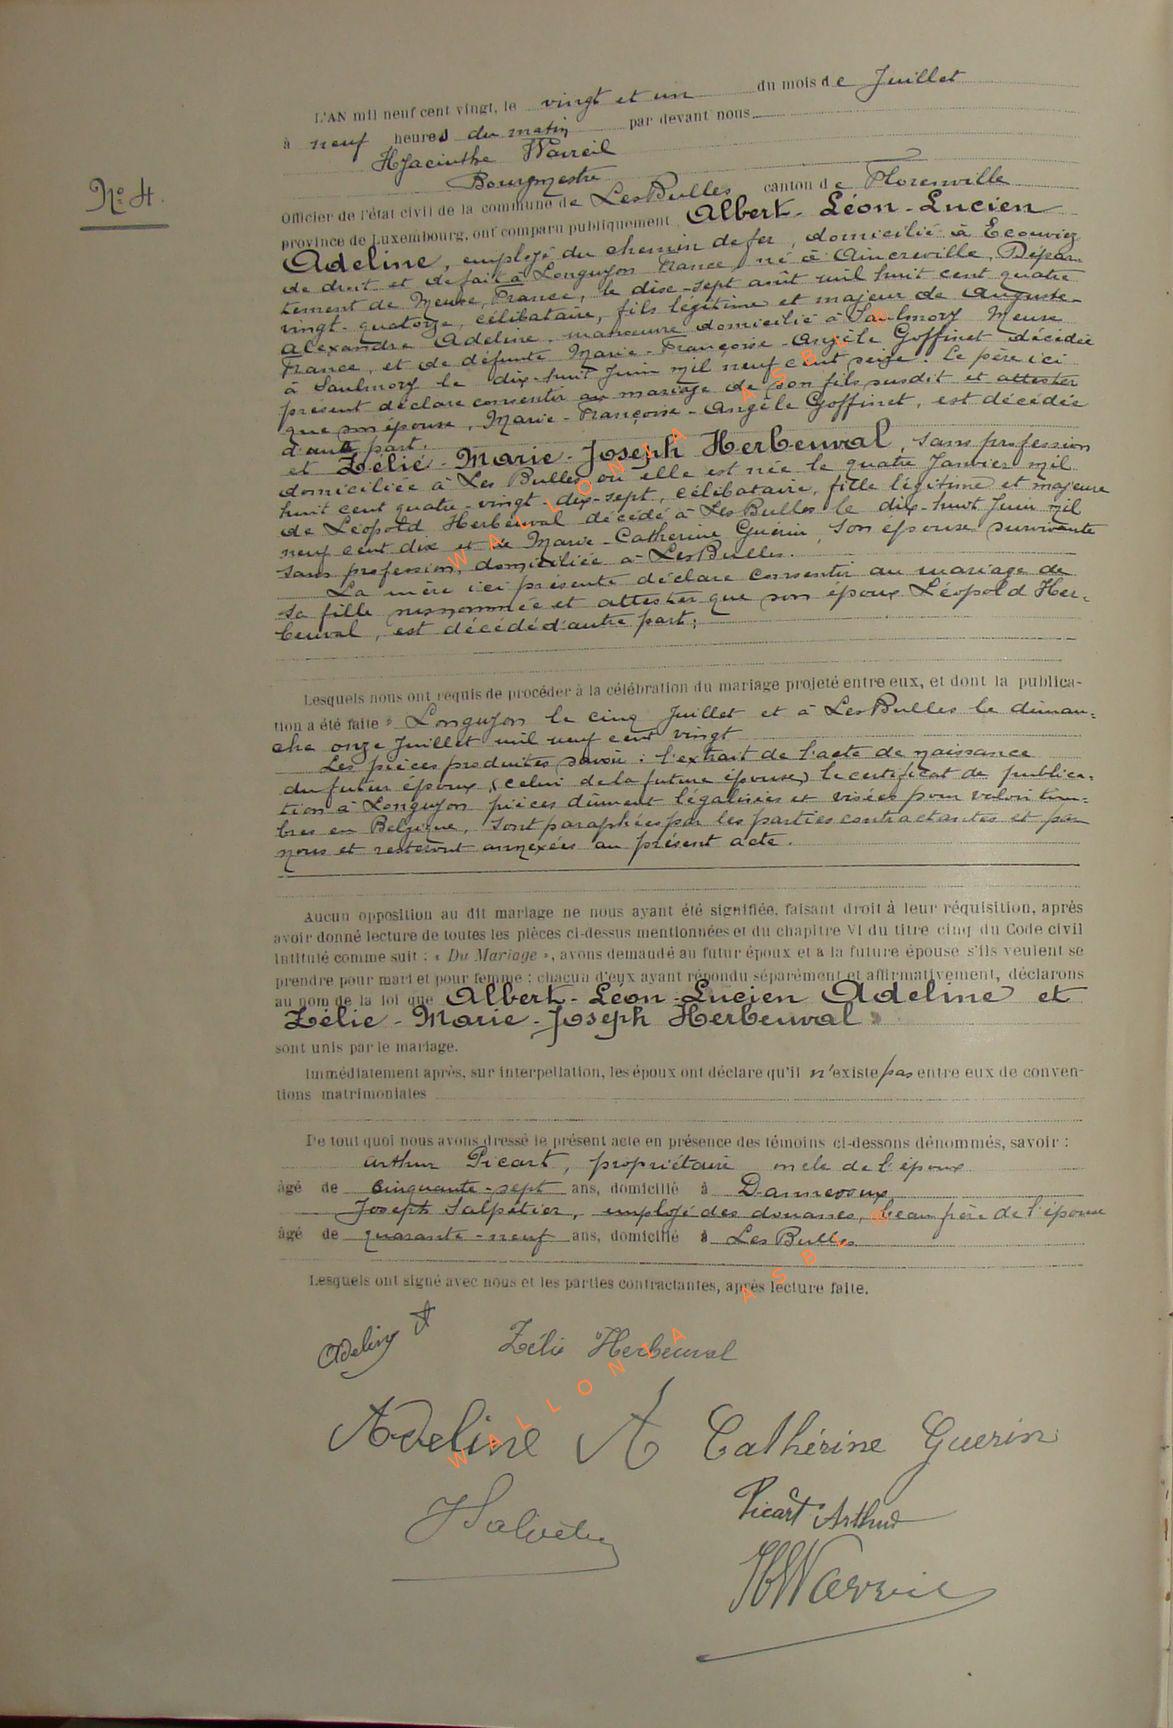 L'AN mil neuf cent vingt, le vingt et un du mois de Juillet
à neuf heures du matin par devant nous
Hyacinthe Warreil
Bourgmestre
N° 4.
Officier de l'état civil de la commune de Les Bulles canton de Florenville
province de Luxembourg, ont comparu publiquement Albert-Léon-Lucien
Adeline, employé du chemin de fer, domicilié à Ecouviez
de droit et de fait à Longuyon France, né à Aincreville, Dépar-
tement de Meuse, France, le dix-sept août mil huit cent quatre
vingt-quatorze, célibataire, fils légitime et majeur de Auguste-
Alexandre Adeline, manœuvre domicilié à Saulmory Meuse
France, et de défunte Marie-Françoise-Angèle Goffinet décédée
à Saulmory le dix-huit Juin mil neuf cent seize. Le père ici
présent déclare consentir au mariage de son fils susdit et attester
que son épouse, Marie-Françoise-Angèle Goffinet, est décédée
d'autre part.
et Zélie-Marie-Joseph Herbeuval, sans profession
domiciliée à Les Bulles où elle est née le quatre Janvier mil
huit cent quatre-vingt-dix-sept, célibataire, fille légitime et majeure
de Léopold Herbeuval décédé à Les Bulles le dix-huit Juin mil
neuf cent dix et de Marie-Catherine Guérin, son épouse survivante
sans profession, domiciliée à Les Bulles.
La mère ici présente déclare consentir au mariage de
sa fille susnommée et attester que son époux Léopold Her-
beuval, est décédé d'autre part;
Lesquels nous ont requis de procéder à la célébration du mariage projeté entre eux, et dont la publica-
tion a été faite à Longuyon le cinq Juillet et à Les Bulles le diman-
che onze Juillet mil neuf cent vingt
Les pièces produites savoir : l'extrait de l'acte de naissance
du futur époux, (celui de la future épouse) le certificat de publica-
tion à Longuyon pièces dûment légalisées et visées pour valoir tim-
bres en Belgique, sont paraphées par les parties contractantes et par
nous et resteront annexées au présent acte.
Aucun opposition au dit mariage ne nous ayant été signifiée, faisant droit à leur réquisition, après
avoir donné lecture de toutes les pièces ci-dessus mentionnées et du chapitre VI du titre cinq du Code civil
intitulé comme suit : « Du Mariage », avons demandé au futur époux et à la future épouse s'ils veulent se
prendre pour mari et pour femme : chacun d'eux ayant répondu séparément et affirmativement, déclarons
au nom de la loi que Albert-Léon-Lucien Adeline et
Zélie-Marie-Joseph Herbeuval
sont unis par le mariage.
Immédiatement après, sur interpellation, les époux ont déclare qu'il n'existe pas entre eux de conven-
tions matrimoniales
De tout quoi nous avons dressé le présent acte en présence des témoins ci-dessons dénommés, savoir :
Arthur Picart, propriétaire oncle de l'époux
âgé de cinquante-sept ans, domicilié à Dannevoux
Joseph Salpetier, employé des douanes, beau frère de l'épouse
âgé de quarante-neuf ans, domicilié à Les Bulles
Lesquels ont signé avec nous et les parties contractantes, après lecture faite.
Adeline A
Zélie Herbeuval
Adeline A Cathérine Guerin
Picart Arthur
WALLONIA ASBL
WALLONIA ASBL